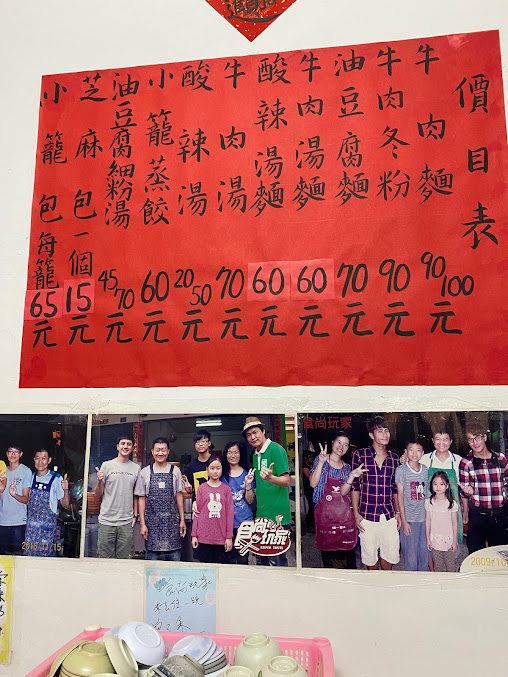 價目表
牛肉麵 90 100元
牛肉冬粉 90元
油豆腐麵 70元
牛肉湯麵 60元
酸辣湯麵 60元
牛肉湯 70元
酸辣湯 20 50元
小籠蒸餃 60元
油豆腐細粉湯 45 70元
芝麻包一個 15元
小籠包每籠 65元
食尚玩家
SUPER TASTE
食尚玩家
2009.10